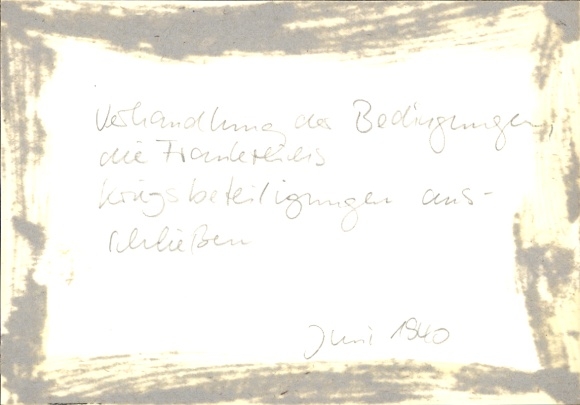 Verhandlung der Bedingungen,
die Frankreichs
Kriegsbeteiligungen aus-
schließen
Juni 1940